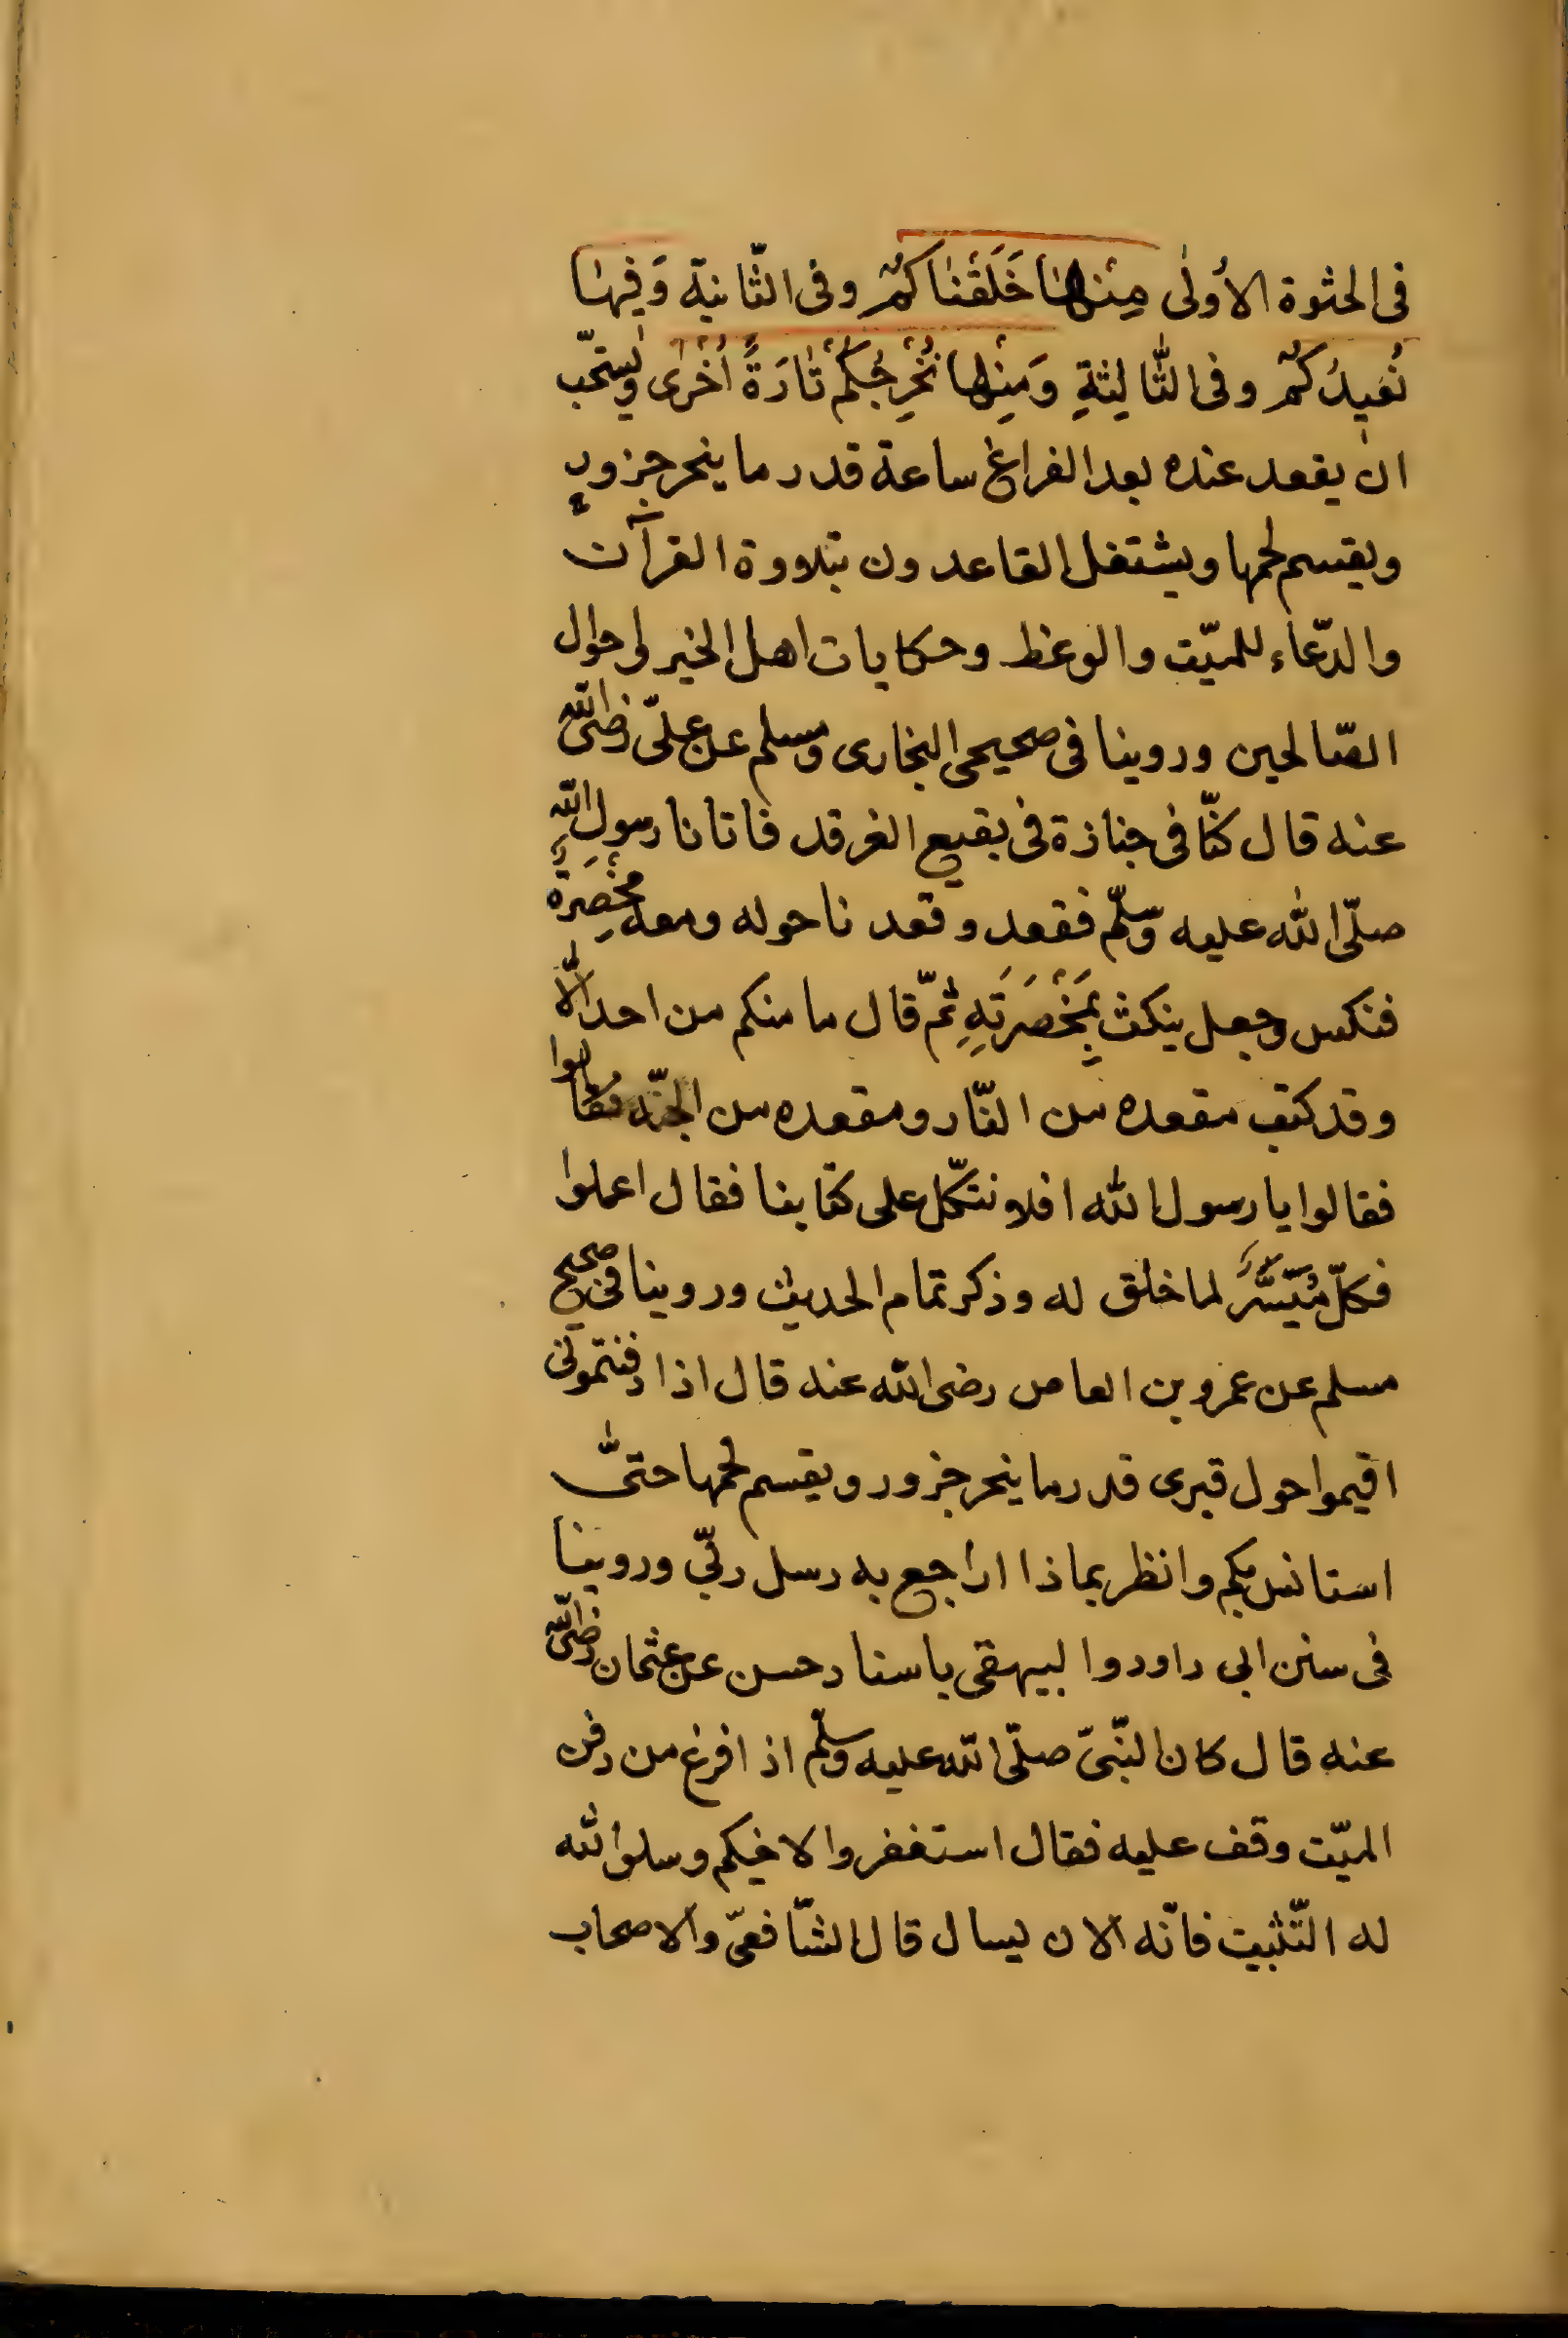 فى الحثوة الأولٰى مِنْهٰا خَلَقْنٰاكُمْ وفى الثّانية وَفِيهٰا
نُعيدُكُمْ وفى الثّالِثةِ وَمِنْهٰا نُخْرِجُكُمْ تٰارَةً اُخْرٰى ويستحّب
ان يقعد عنده بعد الفراغ ساعة قدر ما ينحر جزور
ويقسم لحمها ويشتغل القاعدون بتلاووة القرآن
والدّعاء للميّت والوعظ وحكايات اهل الخير احوال
الصّالحين وروينا فى صحيحى البخارى ومسلم عن علىّ رضى الله
عنه قال كنّا فى جنازة فى بقيع الغرقد فاتانا رسول الله
صلّى الله عليه وسلّم فقعد وقعدنا حوله ومعه مِخْصَرَةٌ
فنكس وجعل ينكث بِمَخْصَرَتِهِ ثمّ قال ما منكم من احد الّا
وقد كتب مقعده من النّار ومقعده من الجنّه فقالوا
فقالوا يا رسول الله افلا نتكّل على كتابنا فقال اعملوا
فكلّ مُيَسَّرٌ لما خلق له وذكر تمام الحديث وروينا فى صحيح
مسلم عن عمرو بن العاص رضى الله عنه قال اذا دفنتمونى
اقيموا حول قبرى قدر ما ينحر جزور ويقسم لحمها حتّى
استانس بكم وانظر بماذا اراجع به رسل ربّى وروينا
فى سنن ابى داود والبيهقى باسناد حسن عن عثمان رضى الله
عنه قال كان النّبىّ صلّى الله عليه وسلّم اذا فرغ من دفن
الميّت وقف عليه فقال استغفروا لاخيكم وسلوا لله
له التّثبيت فانّه الان يسال قال الشّافعىّ والاصحاب